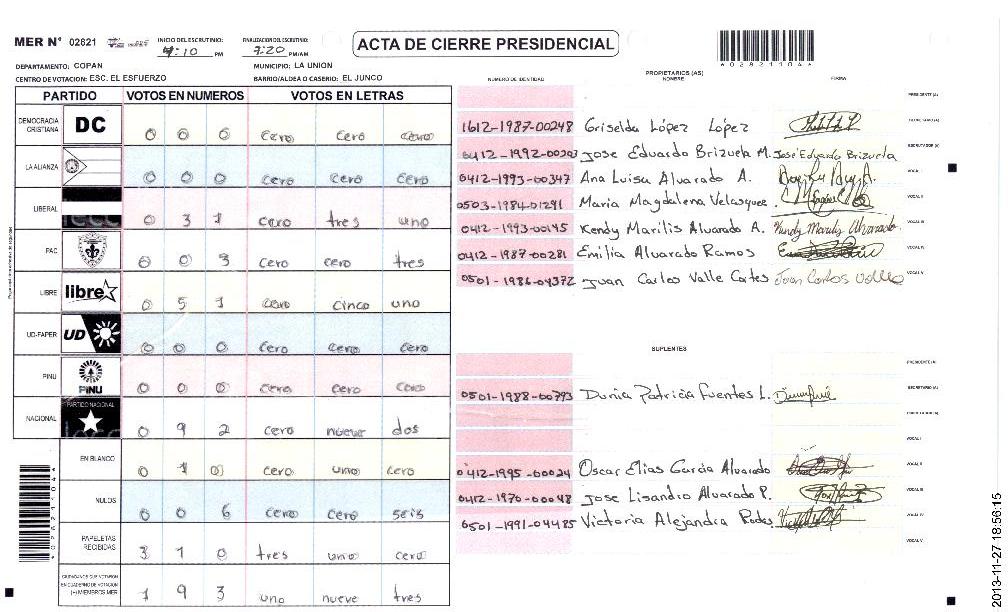 MER N° 02821 INICIO DEL ESCRUTINIO: 4:10 PM FINALIZACION DEL ESCRUTINIO: 7:20 PM/AM
ACTA DE CIERRE PRESIDENCIAL
*028211044*
DEPARTAMENTO: COPAN MUNICIPIO: LA UNION
CENTRO DE VOTACION: ESC. EL ESFUERZO BARRIO/ALDEA O CASERIO: EL JUNCO
PARTIDO VOTOS EN NUMEROS VOTOS EN LETRAS
DEMOCRACIA CRISTIANA DC 0 0 0 cero cero cero
LA ALIANZA 0 0 0 cero cero cero
LIBERAL 0 3 1 cero tres uno
PAC 0 0 3 cero cero tres
LIBRE libre 0 5 1 cero cinco uno
UD-FAPER UD 0 0 0 cero cero cero
PINU PINU 0 0 0 cero cero cero
NACIONAL PARTIDO NACIONAL 0 9 2 cero nueve dos
EN BLANCO 0 1 0 cero uno cero
NULOS 0 0 6 cero cero seis
PAPELETAS RECIBIDAS 3 1 0 tres uno cero
CIUDADANOS QUE VOTARON EN CUADERNO DE VOTACION (+) MIEMBROS MER 1 9 3 uno nueve tres
PROPIETARIOS (AS)
NUMERO DE IDENTIDAD NOMBRE FIRMA
PRESIDENTE (A)
1612-1987-00248 Griselda López López SECRETARIO (A)
0412-1992-00203 Jose Eduardo Brizuela M. José Eduardo Brizuela ESCRUTADOR (A)
0412-1993-00347 Ana Luisa Alvarado A. VOCAL I
0503-1984-01291 Maria Magdalena Velasquez. VOCAL II
0412-1993-00145 Kendy Marilis Alvarado A. Kendy Marilis Alvarado VOCAL III
0412-1987-00281 Emilia Alvarado Ramos VOCAL IV
0501-1986-04372 Juan Carlos Valle Cortes Juan Carlos Valle VOCAL V
SUPLENTES
PRESIDENTE (A)
0501-1988-00793 Dunia Patricia Fuentes L. SECRETARIO (A)
ESCRUTADOR (A)
VOCAL I
0412-1995-00024 Oscar Elias Garcia Alvarado VOCAL II
0412-1970-00048 Jose Lisandro Alvarado P. VOCAL III
0501-1991-04485 Victoria Alejandra Rodas VOCAL IV
VOCAL V
2013-11-27 18:56:15